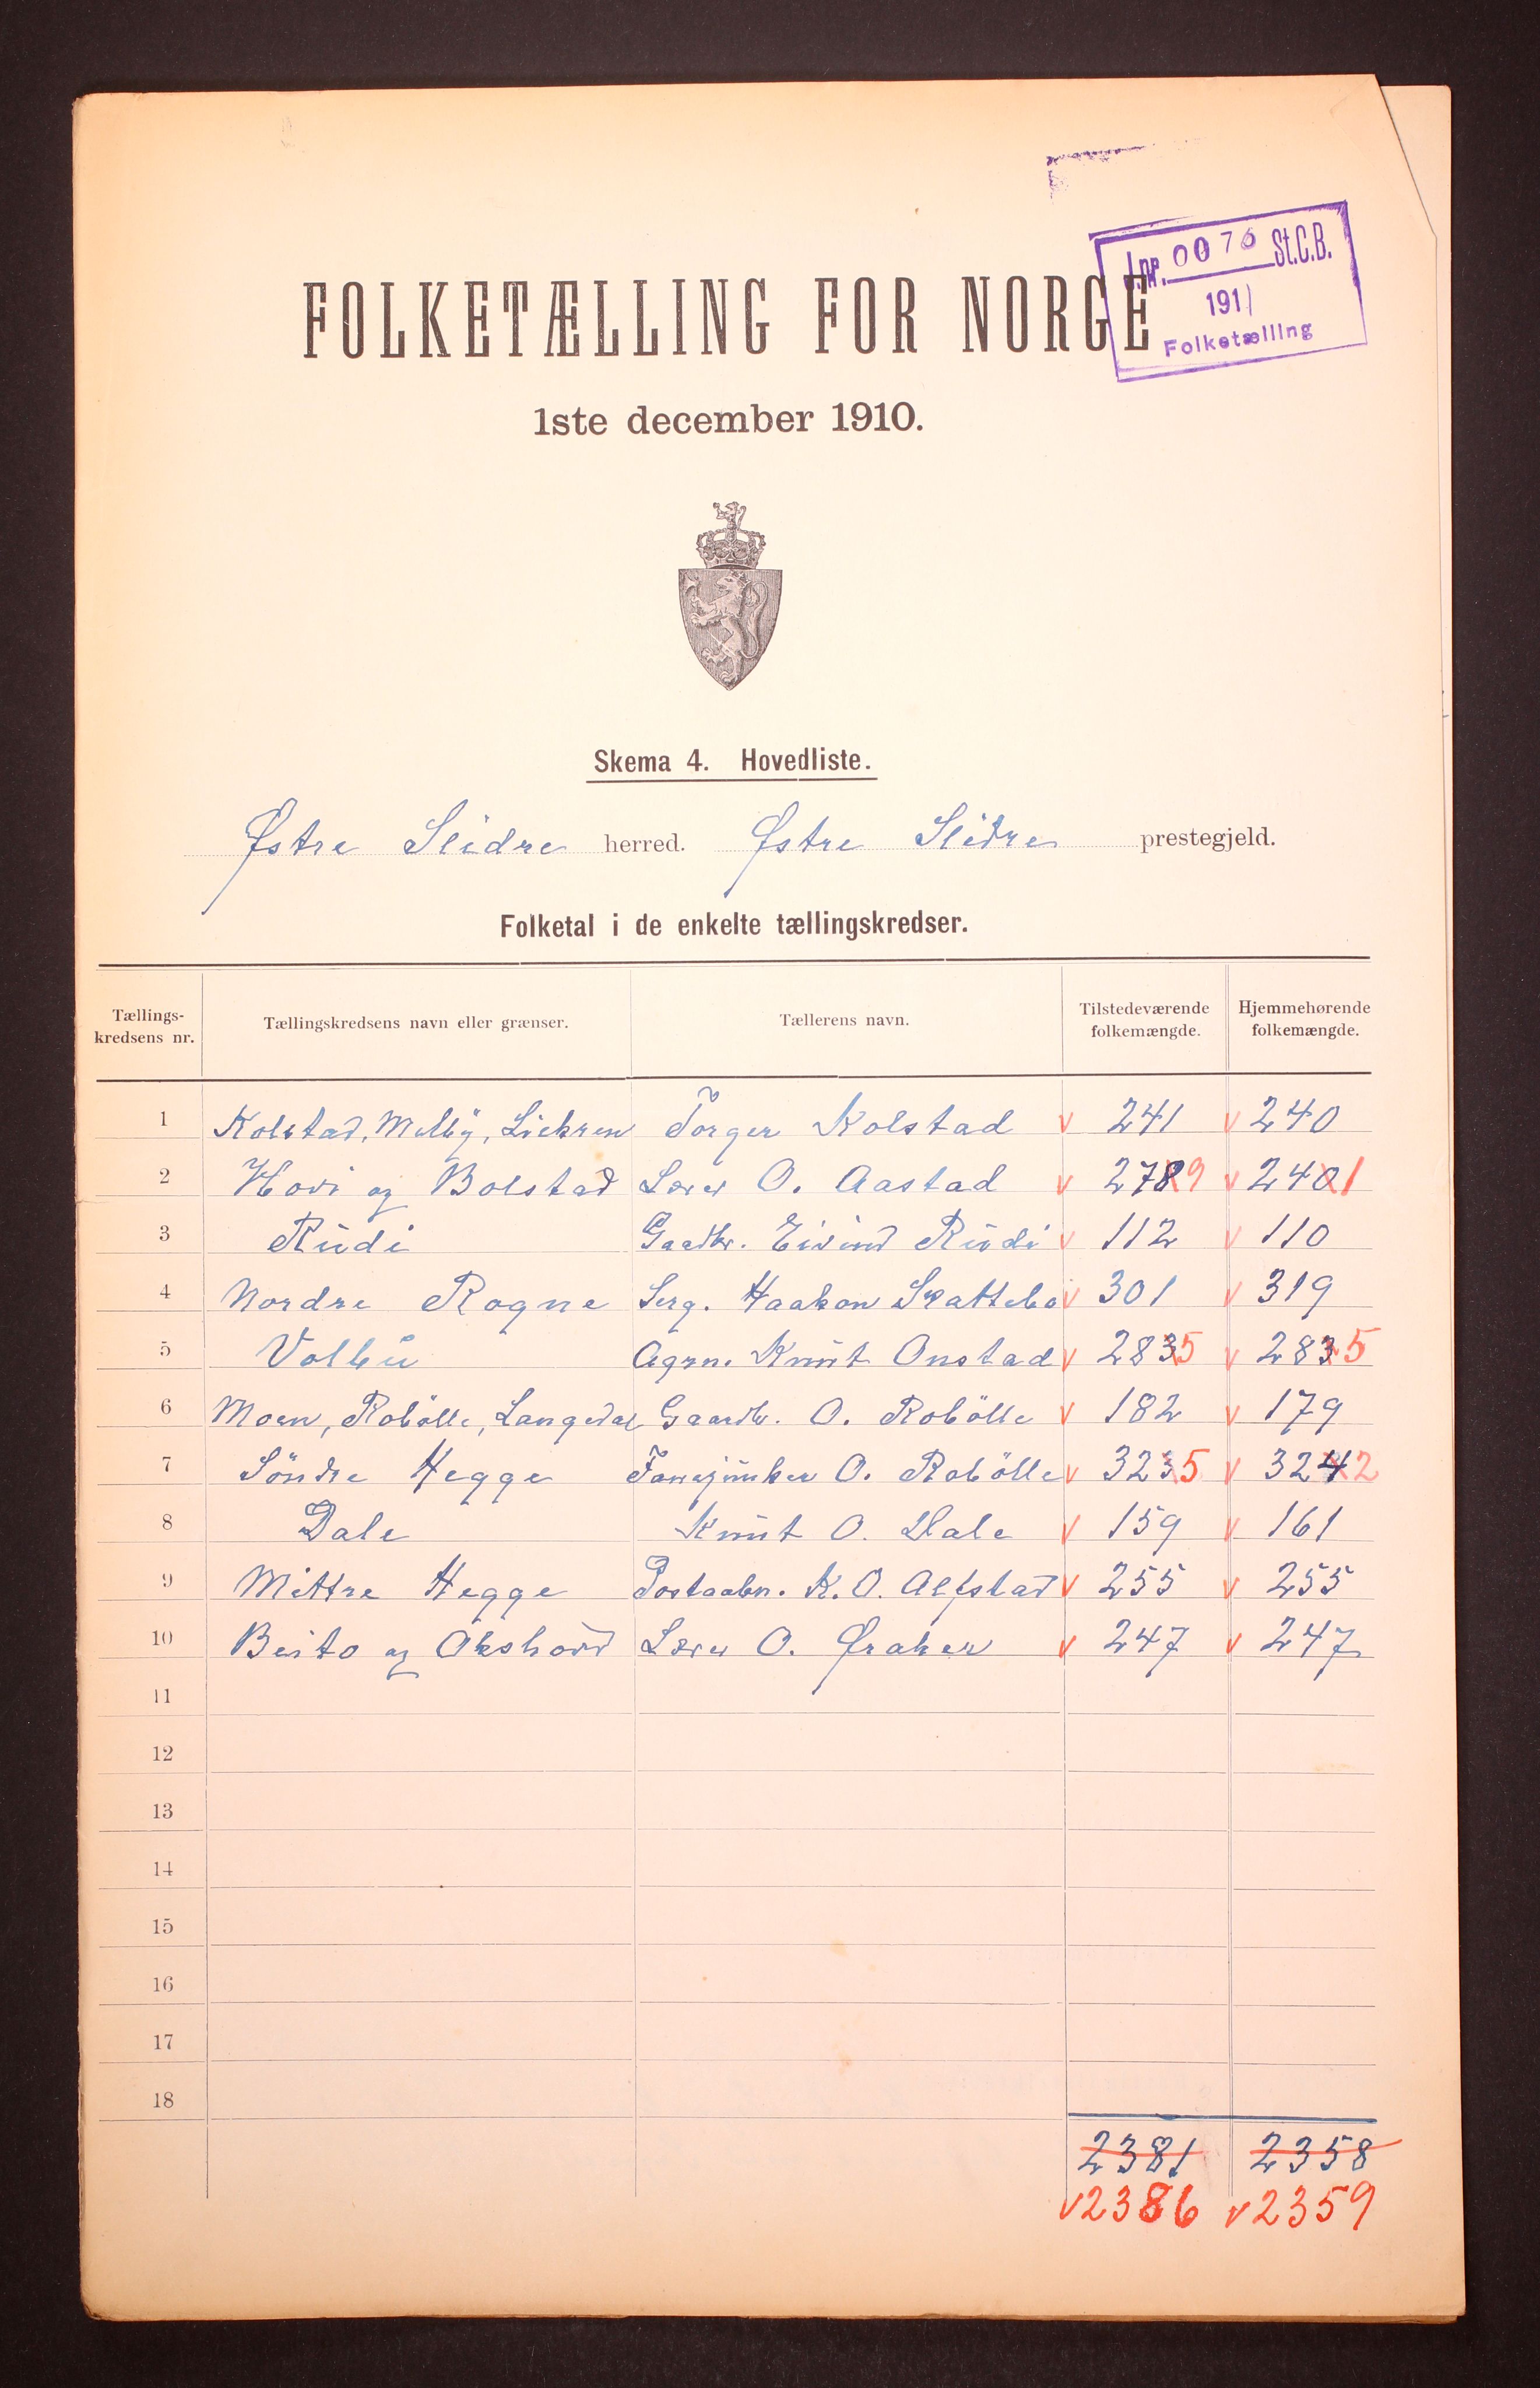 J.nr. 0076 St.C.B.
1911
Folketælling
FOLKETÆLLING FOR NORGE
1ste december 1910.
Skema 4. Hovedliste.
Østre Slidre herred. Østre Slidre prestegjeld.
Folketal i de enkelte tællingskredser.
Tællings-kredsens nr. Tællingskredsens navn eller grænser. Tællerens navn. Tilstedeværende folkemængde. Hjemmehørende folkemængde.
1 Kolstad, Melby, Torger Kolstad v 241 v 240
2 Hovi og Bolstad Lærer O. Aastad v 2789 v 2401
3 Rudi Gaardbr. Eivind Rudi v 112 v 110
4 Nordre Rogne Serg. Haakon Skattebo v 301 v 319
5 Volbu Agrn. Knut Onstad v 2835 v 2835
6 Moen, Robölle, Langedal Gaardb. O. Robölle v 182 v 179
7 Söndre Hegge Fanejunker O. Robölle v 3235 v 3242
8 Dale Knut O. Dale v 159 v 161
9 Mittre Hegge Postaabn. K. O. Alfstad v 255 v 255
10 Beito og Okshovd Lærer O. Øraker v 247 v 247
11
12
13
14
15
16
17
18
2381 2358
v2386 v2359